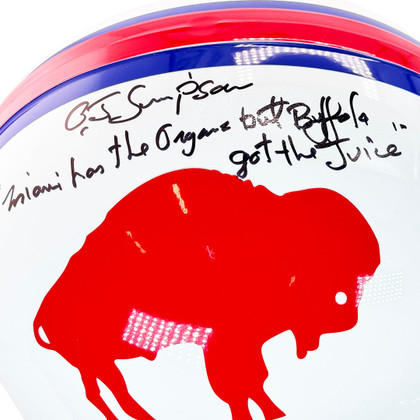 O.J. Simpson
"Miami has the Organe but Buffalo
got the Juice"